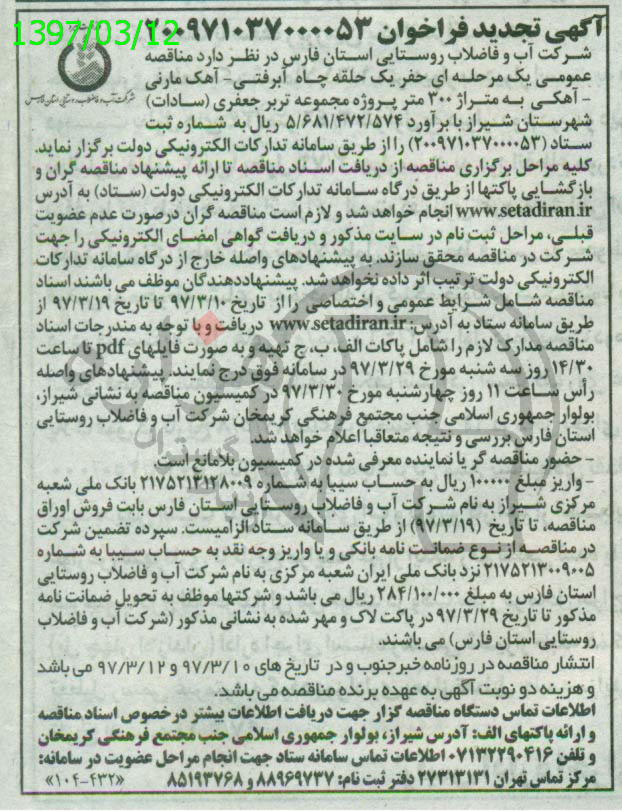 1397/03/12
آگهی تجدید فراخوان ۲۰۰۹۷۱۰۳۷۰۰۰۰۰۵۳
شرکت آب و فاضلاب روستایی استان فارس در نظر دارد مناقصه
عمومی یک مرحله ای حفر یک حلقه چاه آبرفتی - آهک مارنی
- آهکی به متراژ ۳۰۰ متر پروژه مجموعه تربر جعفری (سادات)
شرکت آب و فاضلاب روستایی استان فارس
شهرستان شیراز با برآورد ۵/۶۸۱/۴۷۲/۵۷۴ ریال به شماره ثبت
ستاد (۲۰۰۹۷۱۰۳۷۰۰۰۰۰۵۳) را از طریق سامانه تدارکات الکترونیکی دولت برگزار نماید.
کلیه مراحل برگزاری مناقصه از دریافت اسناد مناقصه تا ارائه پیشنهاد مناقصه گران و
بازگشایی پاکتها از طریق درگاه سامانه تدارکات الکترونیکی دولت (ستاد) به آدرس
www.setadiran.ir انجام خواهد شد و لازم است مناقصه گران درصورت عدم عضویت
قبلی، مراحل ثبت نام در سایت مذکور و دریافت گواهی امضای الکترونیکی را جهت
شرکت در مناقصه محقق سازند. به پیشنهادهای واصله خارج از درگاه سامانه تدارکات
الکترونیکی دولت ترتیب اثر داده نخواهد شد. پیشنهاددهندگان موظف می باشند اسناد
مناقصه شامل شرایط عمومی و اختصاصی را از تاریخ ۹۷/۳/۱۰ تا تاریخ ۹۷/۳/۱۹ از
طریق سامانه ستاد به آدرس: www.setadiran.ir دریافت و با توجه به مندرجات اسناد
مناقصه مدارک لازم را شامل پاکات الف، ب، ج تهیه و به صورت فایلهای pdf تا ساعت
۱۴/۳۰ روز سه شنبه مورخ ۹۷/۳/۲۹ در سامانه فوق درج نمایند. پیشنهادهای واصله
رأس ساعت ۱۱ روز چهارشنبه مورخ ۹۷/۳/۳۰ در کمیسیون مناقصه به نشانی شیراز،
بولوار جمهوری اسلامی جنب مجتمع فرهنگی کریمخان شرکت آب و فاضلاب روستایی
استان فارس بررسی و نتیجه متعاقبا اعلام خواهد شد.
- حضور مناقصه گر یا نماینده معرفی شده در کمیسیون بلامانع است.
- واریز مبلغ ۱۰۰۰۰۰ ریال به حساب سیبا به شماره ۲۱۷۵۲۱۳۱۲۸۰۰۹ بانک ملی شعبه
مرکزی شیراز به نام شرکت آب و فاضلاب روستایی استان فارس بابت فروش اوراق
مناقصه، تا تاریخ (۹۷/۳/۱۹) از طریق سامانه ستاد الزامیست. سپرده تضمین شرکت
در مناقصه از نوع ضمانت نامه بانکی و یا واریز وجه نقد به حساب سیبا به شماره
۲۱۷۵۲۱۳۰۰۹۰۰۵ نزد بانک ملی ایران شعبه مرکزی به نام شرکت آب و فاضلاب روستایی
استان فارس به مبلغ ۲۸۴/۱۰۰/۰۰۰ ریال می باشد و شرکتها موظف به تحویل ضمانت نامه
مذکور تا تاریخ ۹۷/۳/۲۹ در پاکت لاک و مهر شده به نشانی مذکور (شرکت آب و فاضلاب
روستایی استان فارس) می باشند.
انتشار مناقصه در روزنامه خبرجنوب و در تاریخ های ۹۷/۳/۱۰ و ۹۷/۳/۱۲ می باشد
و هزینه دو نوبت آگهی به عهده برنده مناقصه می باشد.
اطلاعات تماس دستگاه مناقصه گزار جهت دریافت اطلاعات بیشتر در خصوص اسناد مناقصه
و ارائه پاکتهای الف: آدرس شیراز، بولوار جمهوری اسلامی جنب مجتمع فرهنگی کریمخان
و تلفن ۰۷۱۳۲۲۹۰۴۱۶ اطلاعات تماس سامانه ستاد جهت انجام مراحل عضویت در سامانه:
مرکز تماس تهران ۲۷۳۱۳۱۳۱ دفتر ثبت نام: ۸۸۹۶۹۷۳۷ و ۸۵۱۹۳۷۶۸ «۱۰۴-۴۳۲»